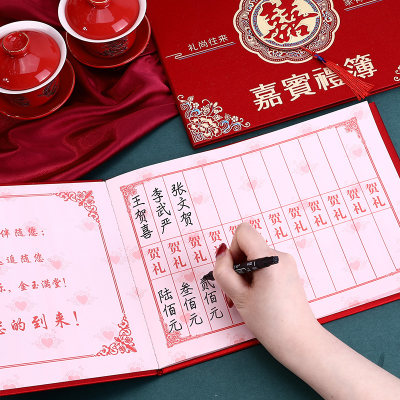 囍
礼尚往来
嘉賓禮簿
伴随您；
追随您
乐，金玉满堂！
您的到来！
王贺喜
李武严
张文贺
贺礼 贺礼 贺礼 贺礼 贺礼 贺礼 贺礼 贺礼 贺礼 贺礼
陆佰元
叁佰元
贰佰元